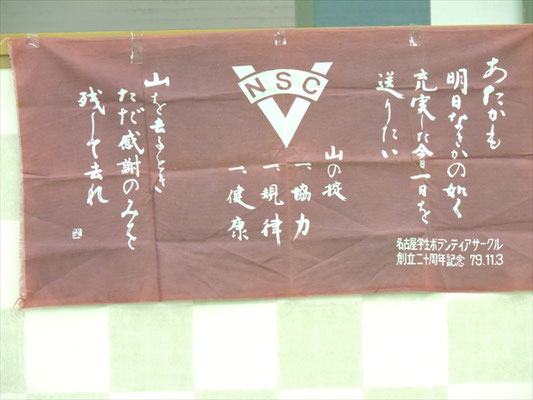 あたかも
明日なきかの如く
充実した今日一日を
送りたい
NSC
山の掟
一、協力
一、規律
一、健康
山を去るとき
ただ感謝のみを
残して去れ
名古屋学生ボランティアサークル
創立二十周年記念 '79.11.3